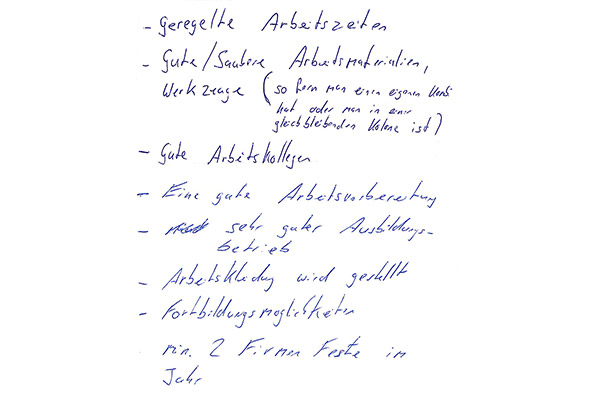 - Geregelte Arbeitszeiten
- Gute/Saubere Arbeitsmaterialien,
Werkzeuge (so fern man einen eigenen
hat oder man in einer
gleichbleibenden Kolone ist)
- Gute Arbeitskollegen
- Eine gute Arbeitsvorbereitung
- sehr guter Ausbildungs-
betrieb
- Arbeitskleidung wird gestellt
- Fortbildungsmöglichkeiten
min. 2 Firmen Feste im
Jahr